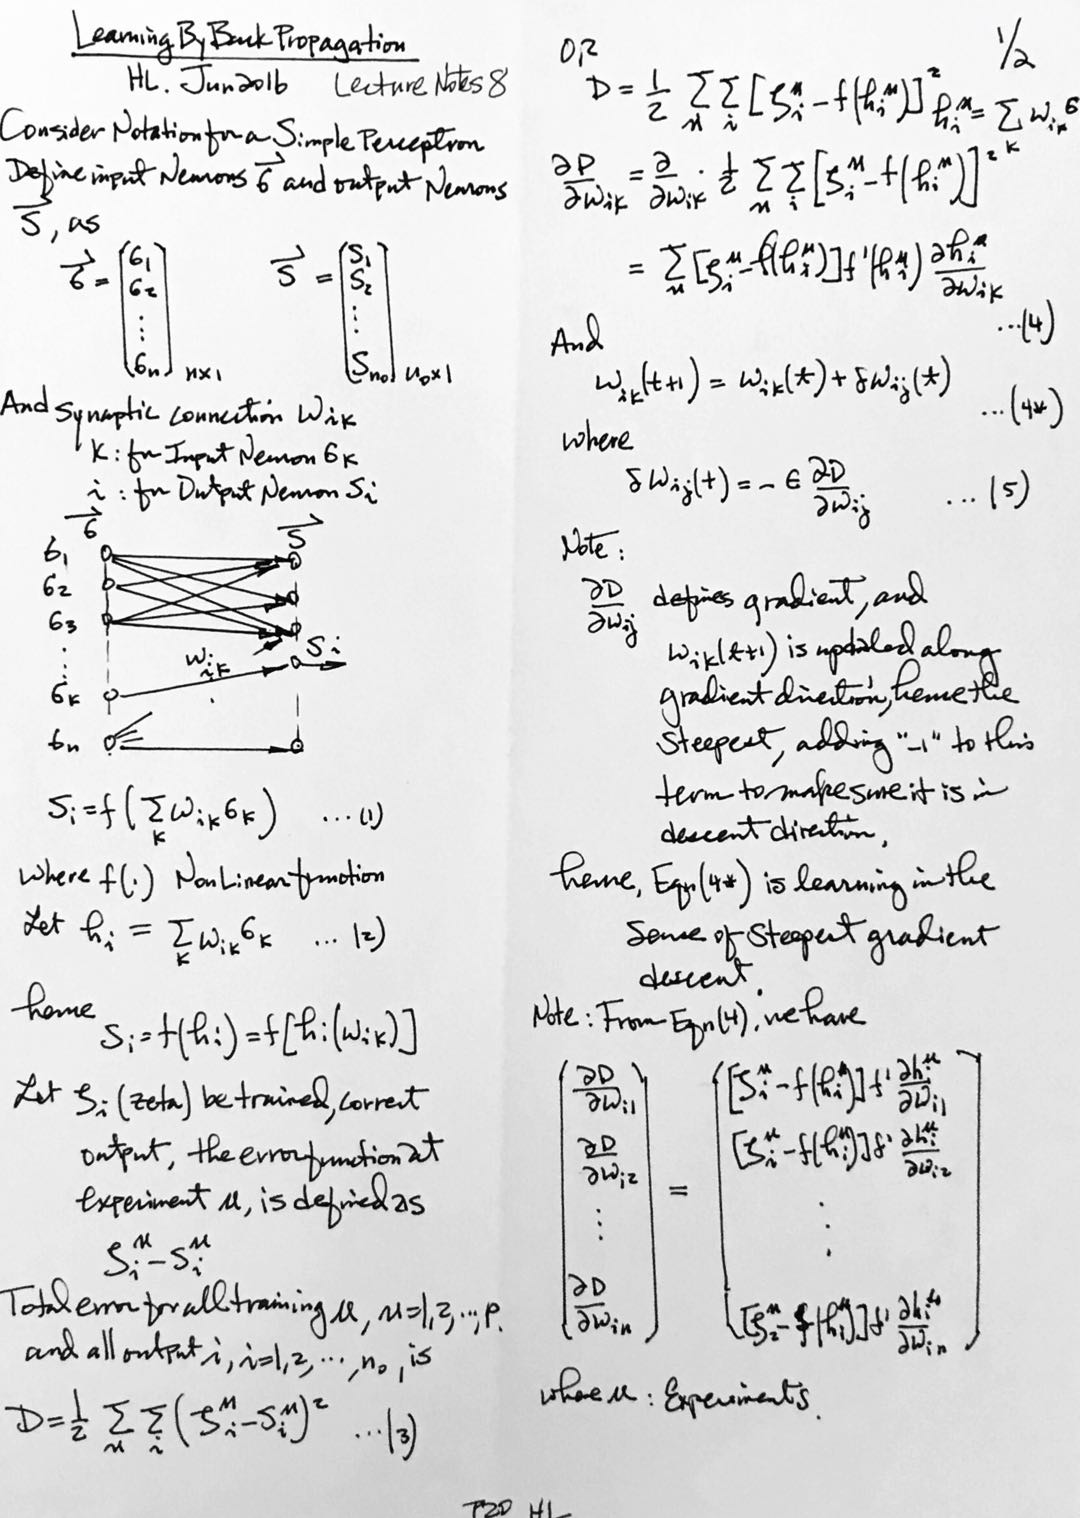 Learning By Back Propagation
HL. Jun 2016 Lecture Notes 8
Consider Notation for a Simple Perceptron
Define input Neurons σ⃗ and output Neurons
S⃗, as
σ⃗ = [σ1 σ2 ⋮ σn] n×1   S⃗ = [S1 S2 ⋮ Sn0] n0×1
And synaptic connection wik
k: for Input Neuron σk
i: for Output Neuron Si
σ⃗ S⃗
σ1
σ2
σ3
⋮
wik Si
σk
σn
Si = f(∑k wik σk) ...(1)
where f(.) NonLinear function
Let hi = ∑k wik σk ... (2)
hence
Si = f(hi) = f[hi(wik)]
Let ζi (zeta) be trained, correct
output, the error function at
experiment μ, is defined as
ζi^μ − Si^μ
Total error for all training μ, μ=1,2,...,p.
and all output i, i=1,2,...,n0, is
D = 1/2 ∑μ ∑i (ζi^μ − Si^μ)² ...(3)
1/2
OR
D = 1/2 ∑μ ∑i [ζi^μ − f(hi^μ)]² hi^μ = ∑k wik σ
∂D/∂wik = ∂/∂wik · 1/2 ∑μ ∑i [ζi^μ − f(hi^μ)]²
= ∑μ [ζi^μ − f(hi^μ)] f'(hi^μ) ∂hi^μ/∂wik
...(4)
And
wik(t+1) = wik(t) + δwij(t)
...(4*)
where
δwij(t) = − ϵ ∂D/∂wij ... (5)
Note:
∂D/∂wij defines gradient, and
wik(t+1) is updated along
gradient direction, hence the
steepest, adding "-1" to this
term to make sure it is in
descent direction.
hence, Eqn(4*) is learning in the
sense of steepest gradient
descent.
Note: From Eqn(4), we have
[∂D/∂wi1 ∂D/∂wi2 ⋮ ∂D/∂win] = [[ζi^μ − f(hi^μ)]f' ∂hi^μ/∂wi1 [ζi^μ − f(hi^μ)]f' ∂hi^μ/∂wi2 ⋮ [ζi^μ − f(hi^μ)]f' ∂hi^μ/∂win]
where μ: Experiments.
HL